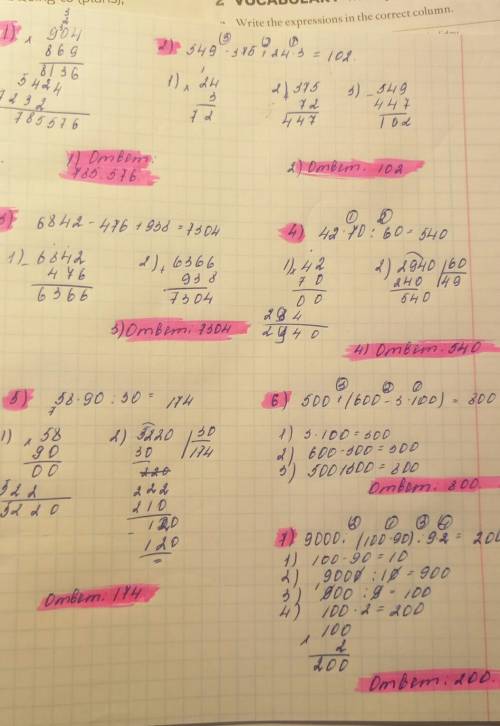 2 VOCABULARY
Write the expressions in the correct column.
1) × 904
869
8136
5424
7232
785576
1) Ответ:
785.576
2) 549 - 375 + 24 · 3 = 102
1) × 24
3
72
2) + 375
72
447
3) - 549
447
102
2) Ответ. 102
3) 6842 - 476 + 938 = 7304
1) - 6842
476
6366
2) + 6366
938
7304
3) Ответ. 7304
4) 42 · 70 : 60 = 540
1) × 42
70
00
294
2940
2) 2940 | 60
240 | 49
540
4) Ответ. 540
5) 58 · 90 : 30 = 174
1) × 58
90
00
522
5220
2) 5220 | 30
30 | 174
220
222
210
- 120
120
Ответ. 174
6) 500 + (600 - 3 · 100) = 800
1) 3 · 100 = 300
2) 600 - 300 = 300
3) 500 + 300 = 800
Ответ. 800.
7) 9000 : (100 - 90) : 9 · 2 = 200
1) 100 - 90 = 10
2) 9000 : 10 = 900
3) 900 : 9 = 100
4) 100 · 2 = 200
× 100
2
200
Ответ. 200.